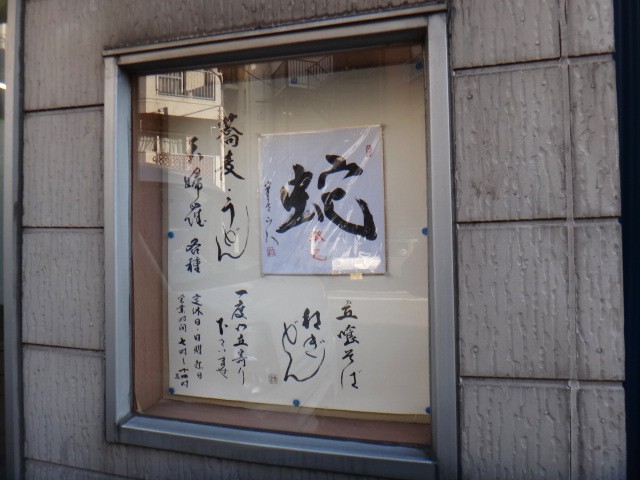 蕎麦・うどん
天婦羅 各種
蛇
立喰そば
ねぎどん
一度お立寄り
下さいませ
定休日・日曜 祭日
営業時間 七時〜十四時